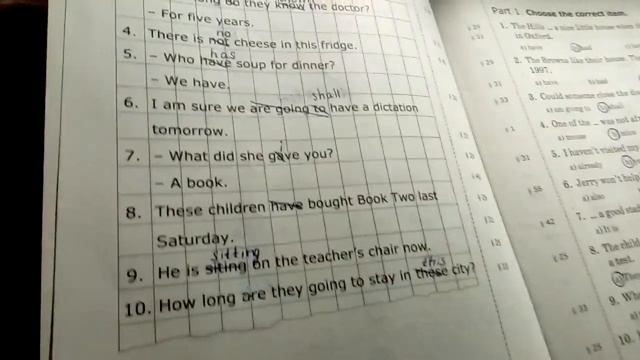 do they know the doctor?
– For five years.
no
4. There is not cheese in this fridge.
has
5. – Who have soup for dinner?
– We have.
shall
6. I am sure we are going to have a dictation
tomorrow.
i
7. – What did she gave you?
– A book.
8. These children have bought Book Two last
Saturday.
sitting
9. He is siting on the teacher's chair now.
this
10. How long are they going to stay in these city?
Part 1. Choose the correct item.
1. The Hills – a nice little house when
in Oxford.
a) have b) had
2. The Browns like their house. The
1997.
a) have b) had
3. Could someone close the
a) am going to b) shall
4. One of the – was not
a) mouse
5. I haven't visited my
a) already
6. Jerry won't help
a) also
7. – a good
a) It is
8. The child
a test.
9.
10.